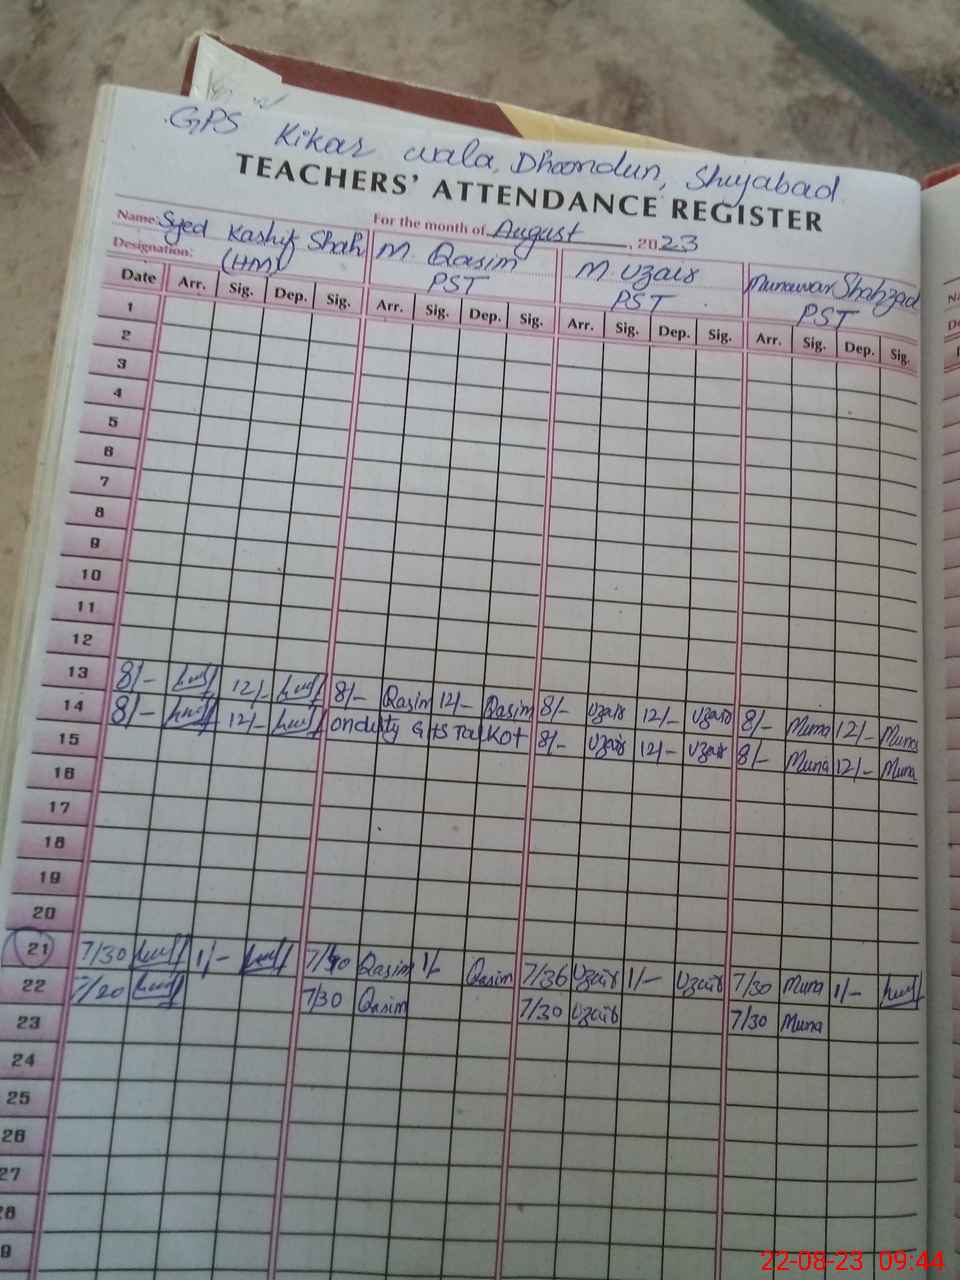 GPS Kikar wala, Dhoondun, Shujabad
TEACHERS' ATTENDANCE REGISTER
Name: Syed Kashif Shah
For the month of August, 2023
Designation: (HM)
M. Qasim
PST
M. Uzair
PST
Munawar Shahzad
PST
Date Arr. Sig. Dep. Sig. Arr. Sig. Dep. Sig. Arr. Sig. Dep. Sig. Arr. Sig. Dep. Sig.
1
2
3
4
5
6
7
8
9
10
11
12
13 8/- 12/- 8/- Qasim 12/- Qasim 8/- Uzair 12/- Uzair 8/- Muna 12/- Muna
14 8/- 12/- onduty GHS Talkot 8/- Uzair 12/- Uzair 8/- Muna 12/- Muna
15
16
17
18
19
20
21 7/30 1/- 7/40 Qasim 1/- Qasim 7/36 Uzair 1/- Uzair 7/30 Muna 1/-
22 7/20 7/30 Qasim 7/30 Uzair 7/30 Muna
23
24
25
26
27
28
9
22-08-23 09:44